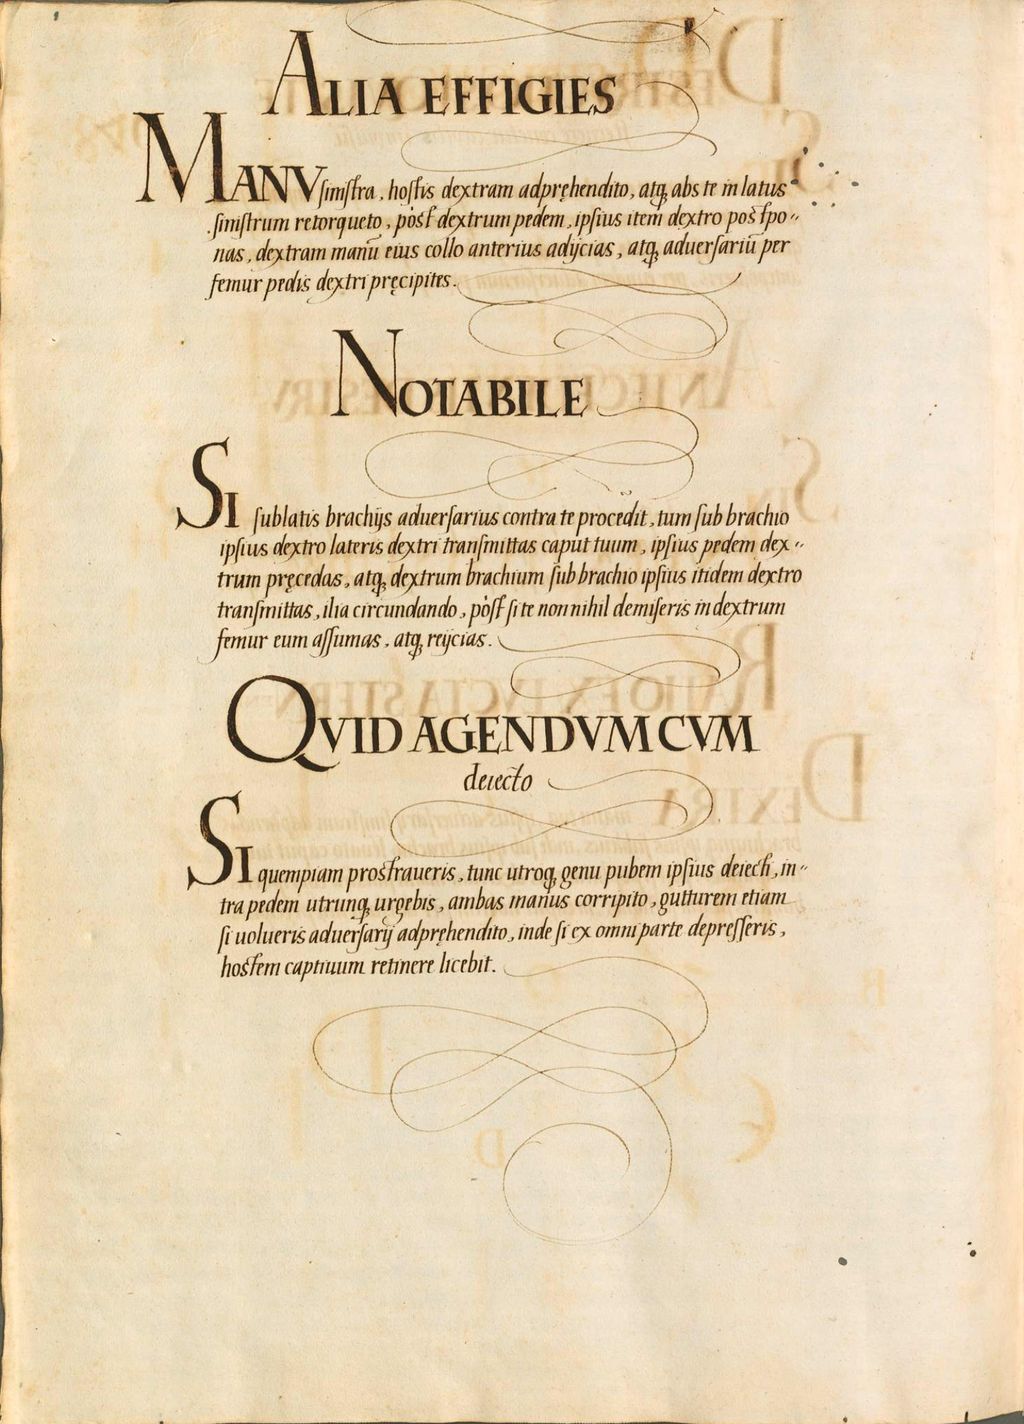 ALIA EFFIGIES
MANV sinistra, hostis dextram adpręhendito, atq; abs te in latus
sinistrum retorqueto, pòst dextrum pedem, ipsius item dextro postpo-
nas, dextram manū eius collo anterius adijcias, atq; aduersariū per
femur pedis dextri pręcipites.
NOTABILE
SI sublatis brachijs aduersarius contra te procedit, tum sub brachio
ipsius dextro lateris dextri transmittas caput tuum, ipsius pedem dex-
trum pręcedas, atq; dextrum brachium sub brachio ipsius itidem dextro
transmittas, ilia circundando, pòst si te non nihil demiseris in dextrum
femur eum assumas, atq; reijcias.
QVID AGENDVM CVM
deiecto
SI quempiam prostraueris, tunc utroq; genu pubem ipsius deiecti, in-
tra pedem utrunq; urgebis, ambas manus corripito, gutturem etiam
si uolueris aduersarij adpręhendito, inde si ex omni parte depresseris,
hostem captiuum retinere licebit.